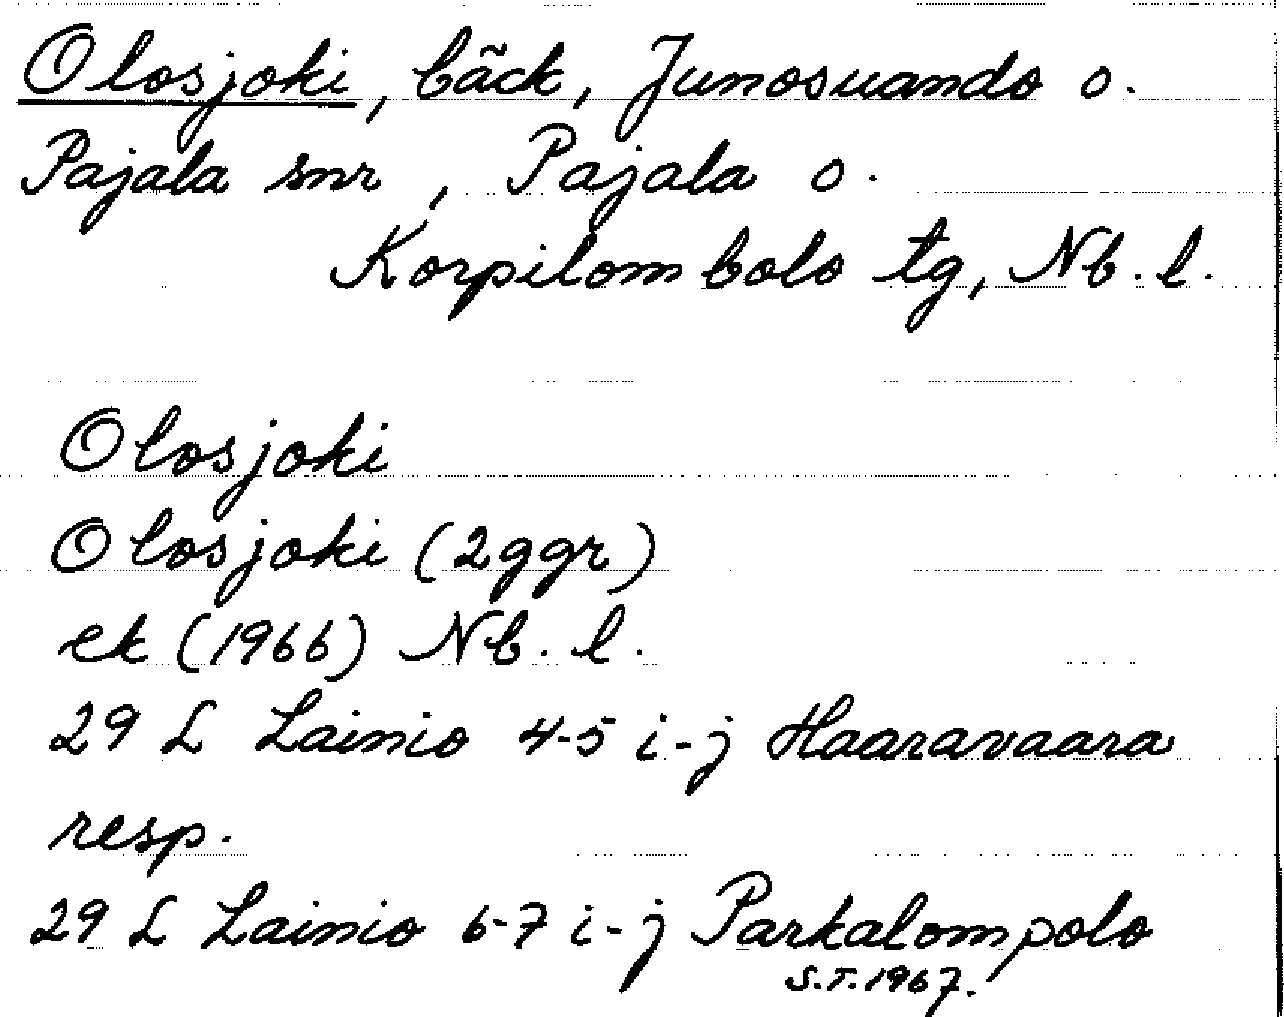 Olosjoki, bäck, Junosuando o.
Pajala snr, Pajala o.
Korpilombolo tg, Nb. l.
Olosjoki
Olosjoki (2ggr)
ek (1966) Nb. l.
29 L Lainio 4-5 i-j Haaravaara
resp.
29 L Lainio 6-7 i-j Parkalompolo
S.T. 1967.